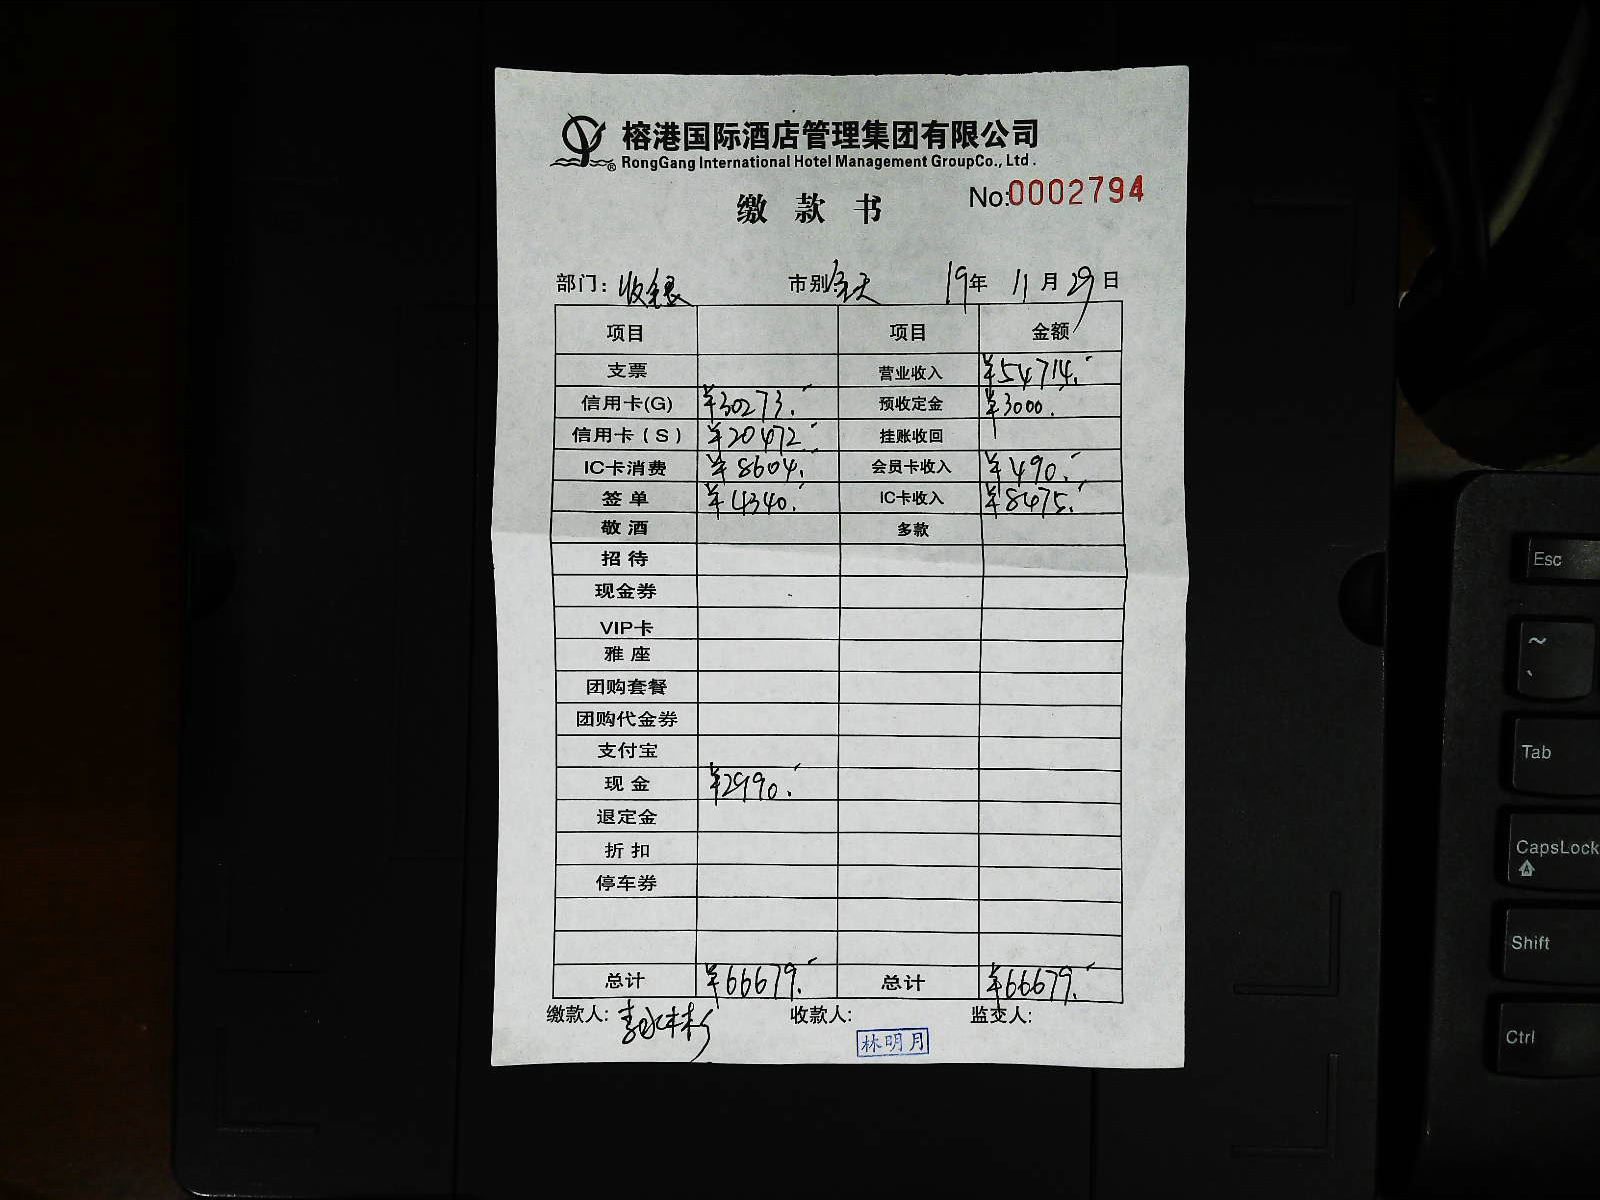 榕港国际酒店管理集团有限公司
® RongGang International Hotel Management GroupCo., Ltd .
缴 款 书
No:0002794
部门: 收银 市别:全天 19年 11月29日
项目 项目 金额
支票 营业收入 ¥54714.-
信用卡(G) ¥30273.- 预收定金 ¥3000.
信用卡(S) ¥20472.- 挂账收回
IC卡消费 ¥8604.- 会员卡收入 ¥490.-
签 单 ¥4340.- IC卡收入 ¥8475.-
敬 酒 多款
招 待
现金券
VIP卡
雅 座
团购套餐
团购代金券
支付宝
现 金 ¥2990.-
退定金
折 扣
停车券
总计 ¥66679.- 总计 ¥66679.-
缴款人: 收款人: 监交人:
林明月
Esc
~
、
Tab
CapsLock
A
Shift
Ctrl